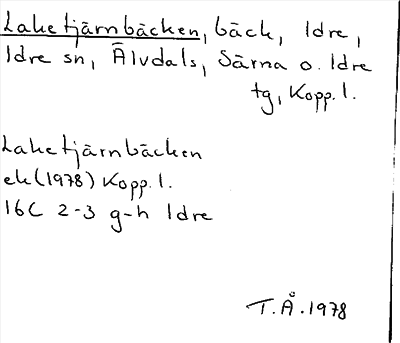 Laketjärnbäcken, bäck, Idre,
Idre sn, Älvdals, Särna o. Idre
tg, Kopp. l.
Laketjärnbäcken
ek (1978) Kopp. l.
16C 2-3 g-h Idre
T.Å. 1978